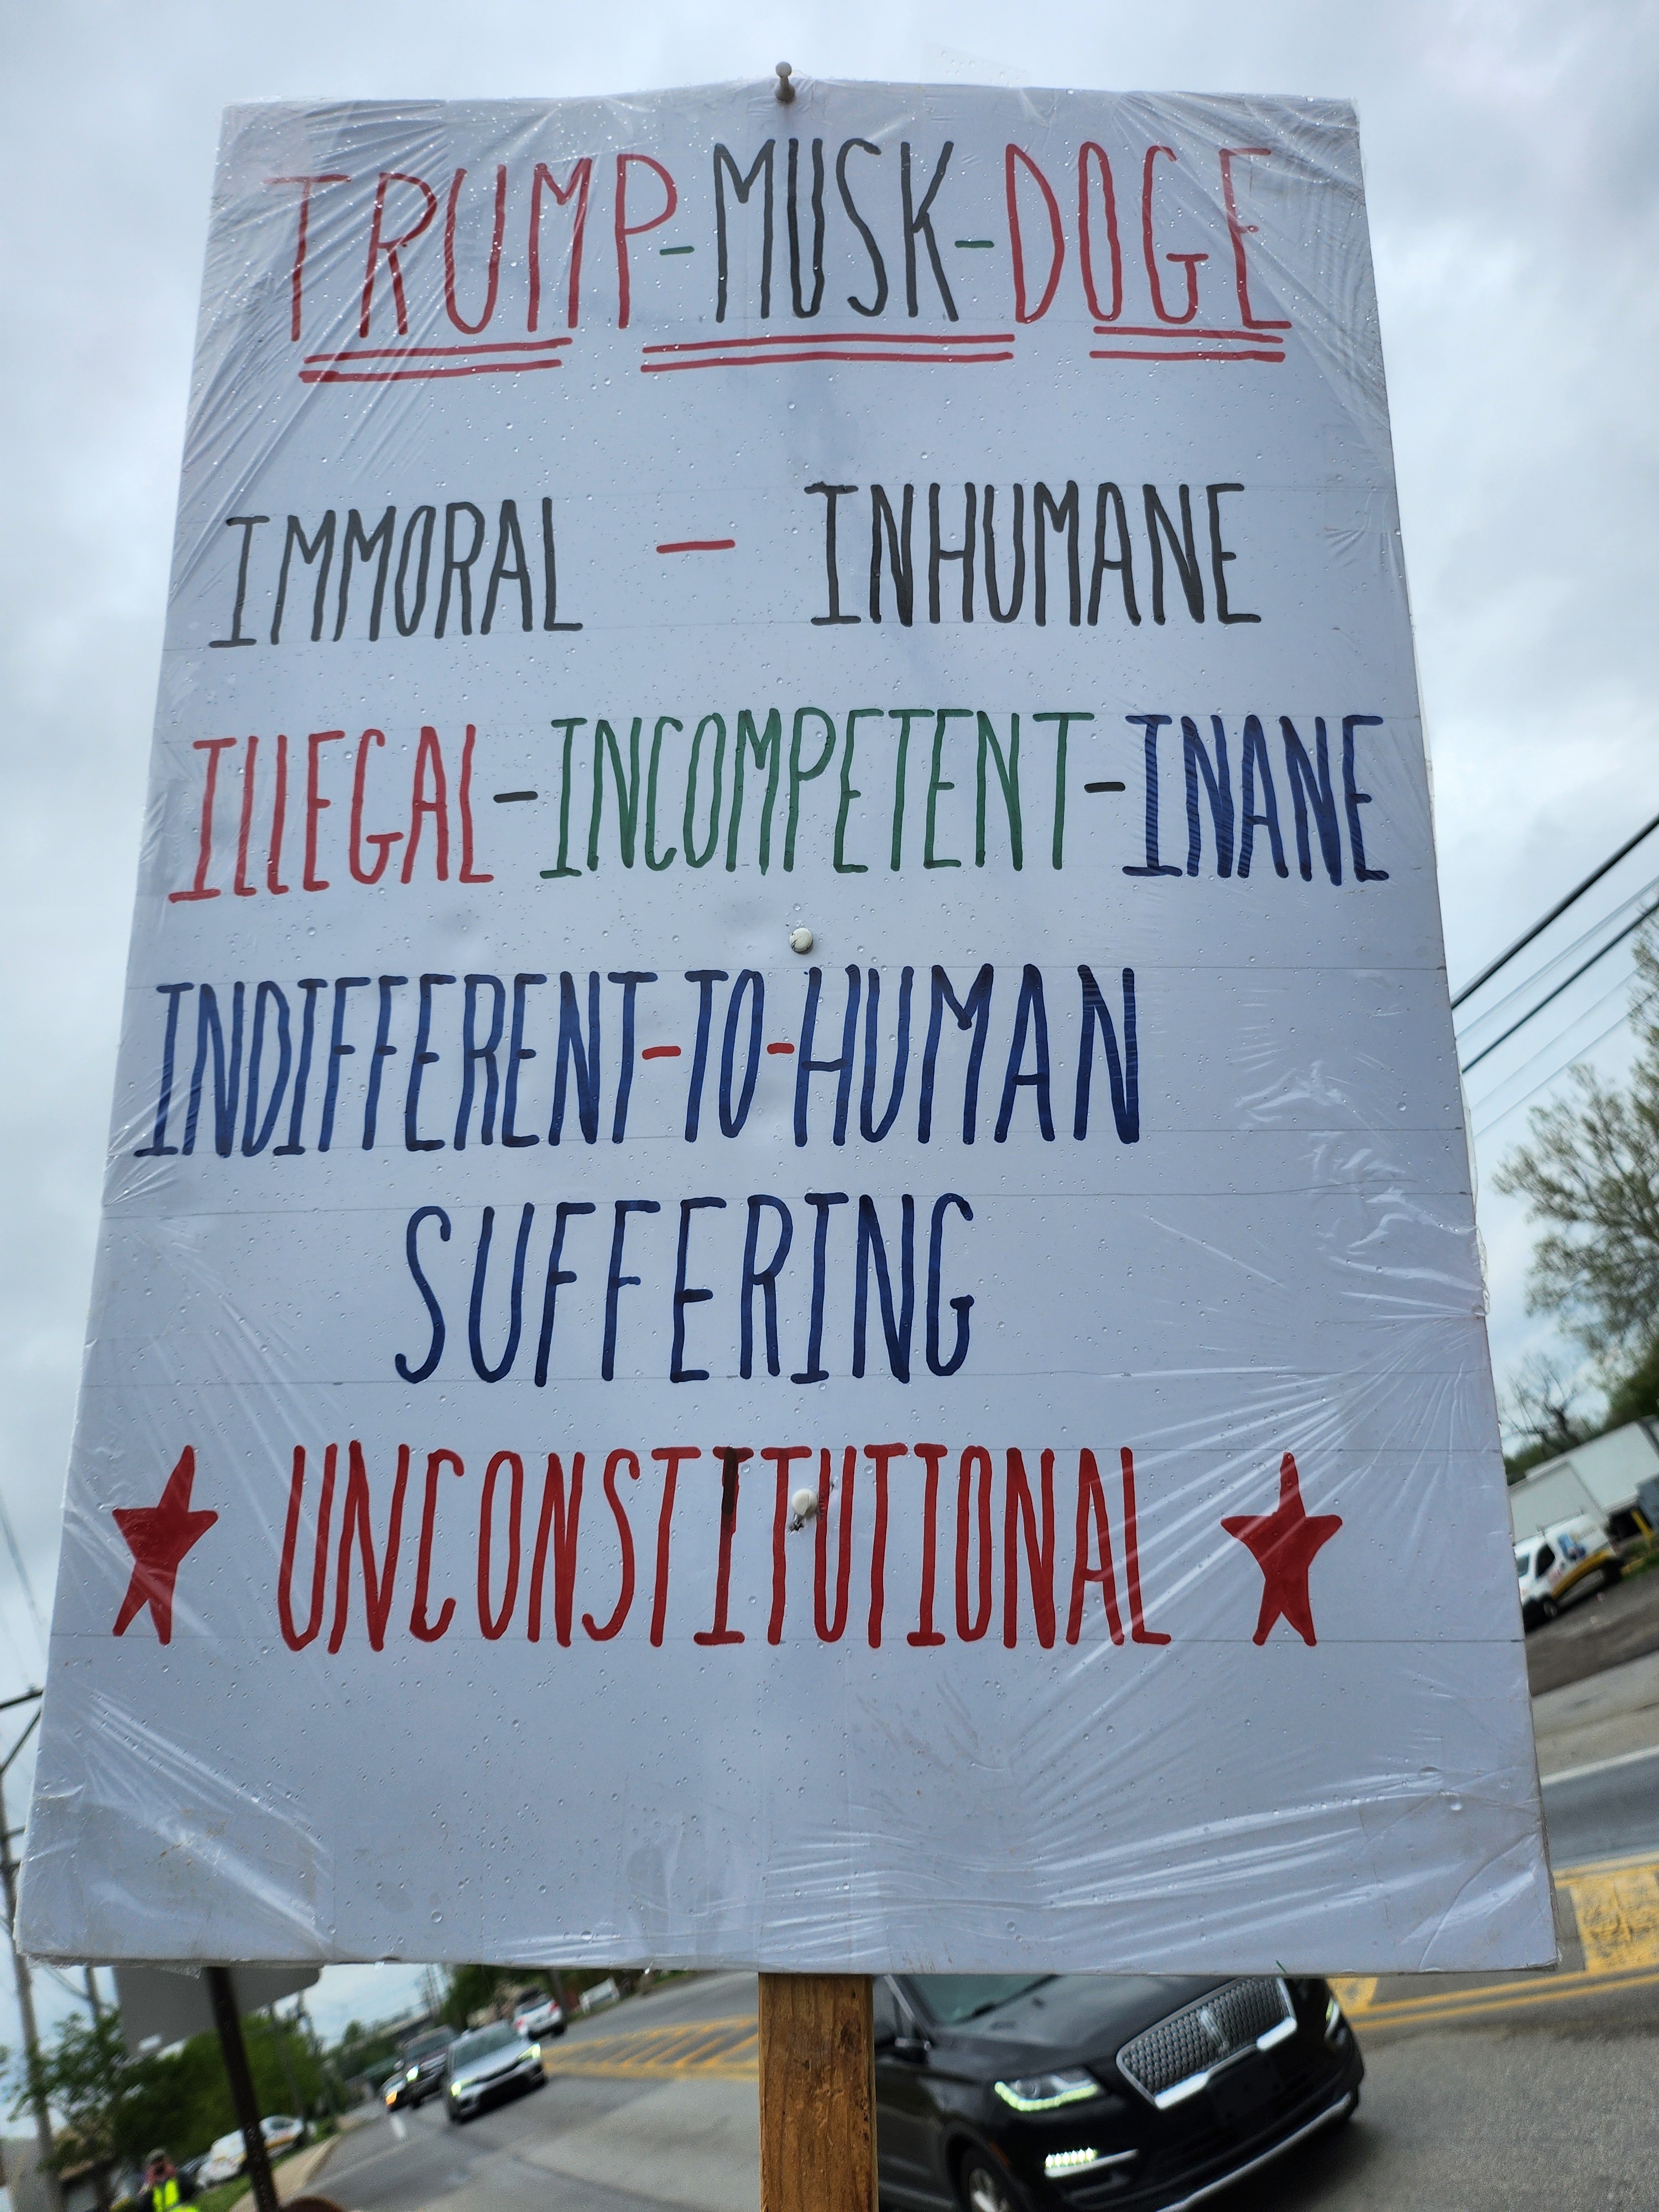 TRUMP-MUSK-DOGE
IMMORAL - INHUMANE
ILLEGAL-INCOMPETENT-INANE
INDIFFERENT-TO-HUMAN
SUFFERING
★ UNCONSTITUTIONAL ★